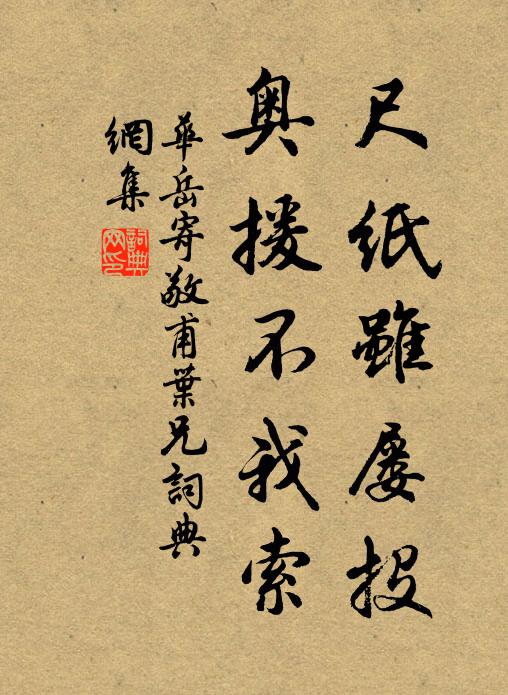 尺紙雖屡投
奥援不我索
華岳寄敬甫葉兄詞典
網集
詞典
网印